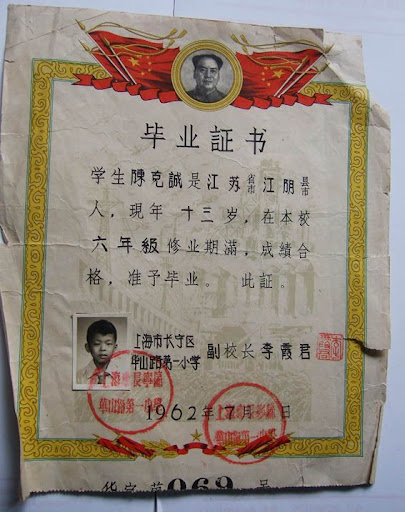 毕业証书
学生陳克誠是江苏省市江阴县市
人，现年十三岁，在本校
六年級修业期滿，成績合
格，准予毕业。此証。
上海市长宁区
华山路第一小学
副校长李霞君
1962年7月 日
华字第069号